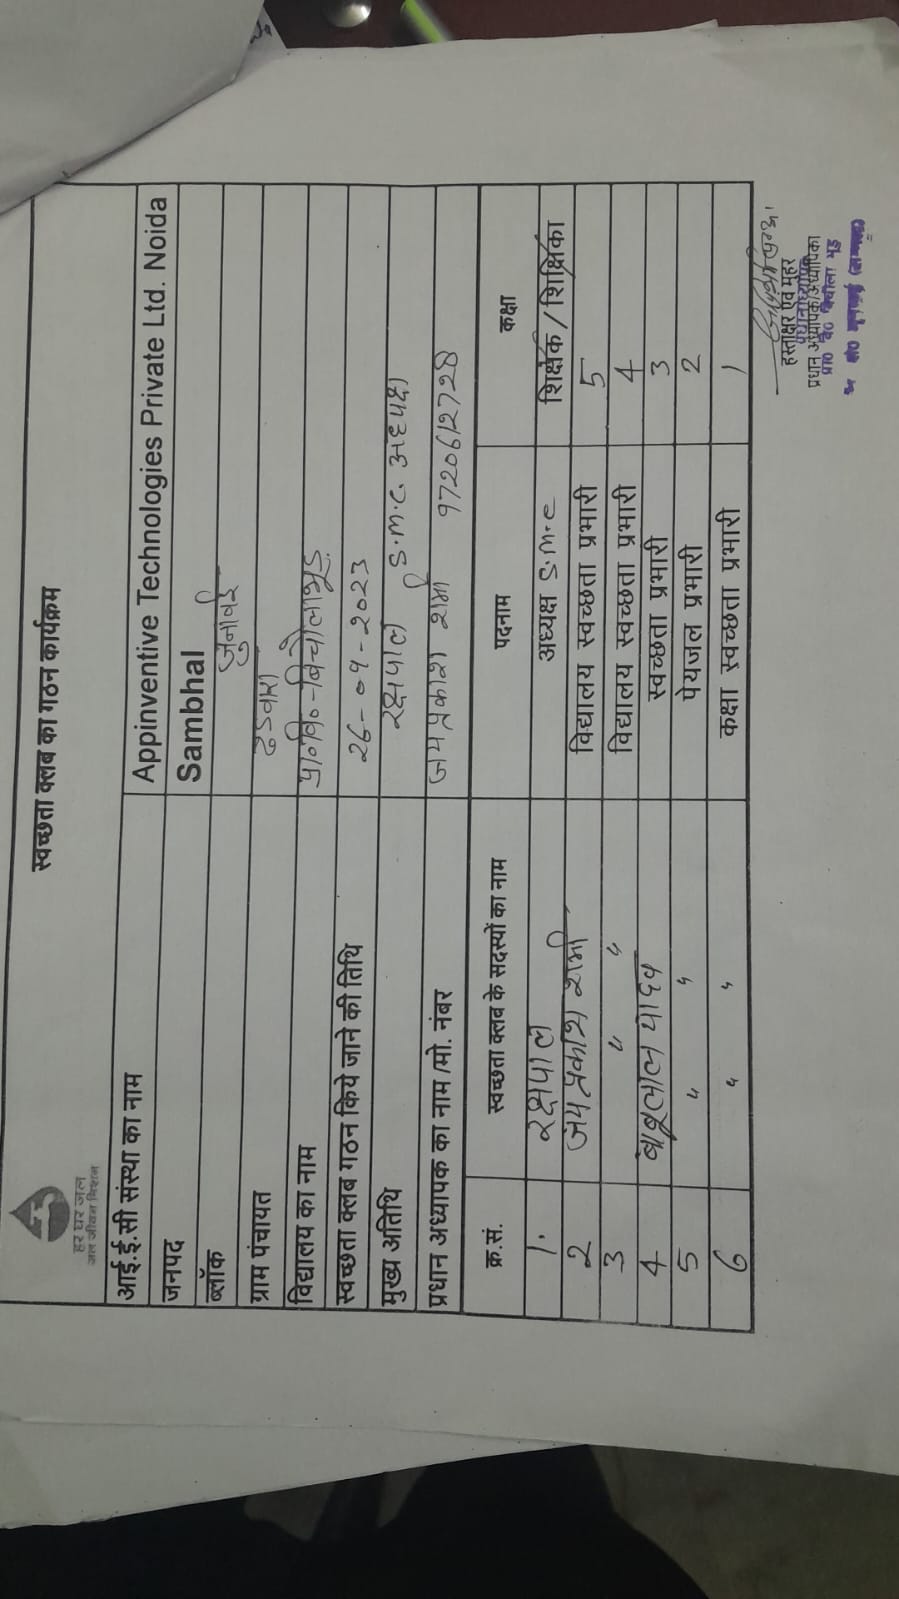 स्वच्छता क्लब का गठन कार्यक्रम
हर घर जल
जल जीवन मिशन
आई.ई.सी संस्था का नाम Appinventive Technologies Private Ltd. Noida
जनपद Sambhal
ब्लॉक जुनावई
ग्राम पंचायत
विद्यालय का नाम प्रा॰वि॰-बिचोलाभूड़
स्वच्छता क्लब गठन किये जाने की तिथि 26-09-2023
मुख्य अतिथि रक्षपाल S.M.C. अध्यक्ष
प्रधान अध्यापक का नाम /मो. नंबर जय प्रकाश शर्मा 9720612728
क्र.सं. स्वच्छता क्लब के सदस्यों का नाम पदनाम कक्षा
1. रक्षपाल अध्यक्ष S.M.C शिक्षक / शिक्षिका
2 जय प्रकाश शर्मा विद्यालय स्वच्छता प्रभारी 5
3 " " विद्यालय स्वच्छता प्रभारी 4
4 बाबूलाल यादव स्वच्छता प्रभारी 3
5 " " पेयजल प्रभारी 2
6 " " कक्षा स्वच्छता प्रभारी 1
हस्ताक्षर एवं मुहर
प्रधानाध्यापक
प्रधान अध्यापक/अध्यापिका